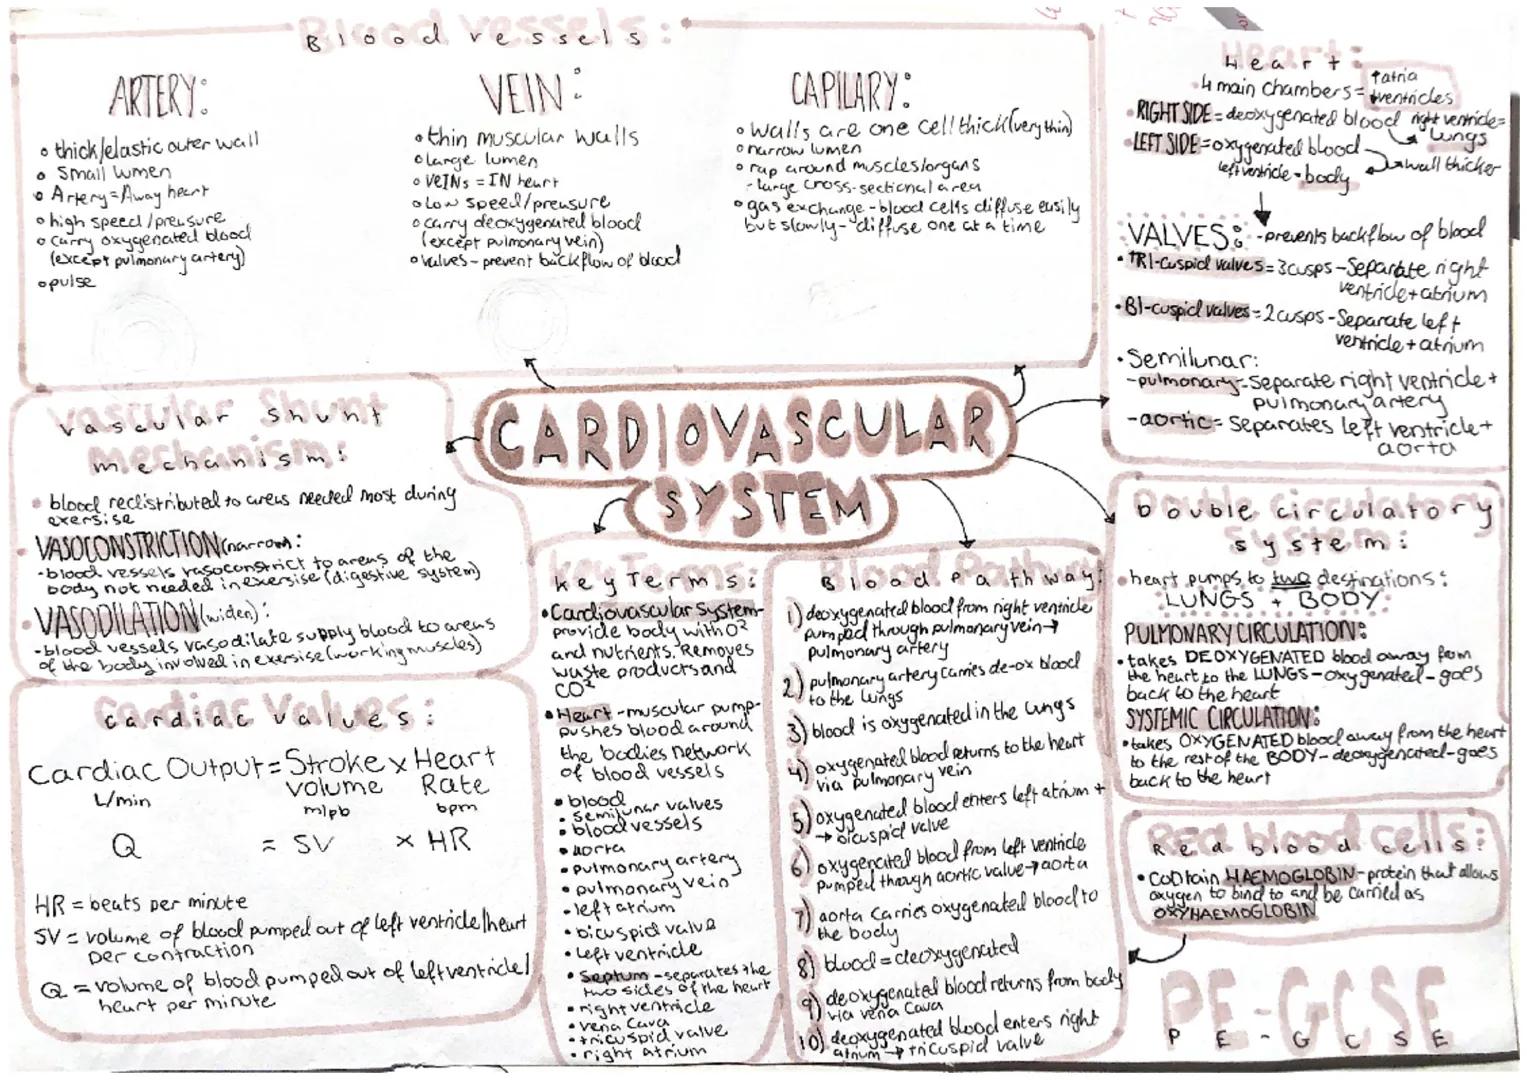 Blood vessels:
ARTERY:
thick/elastic outer wall
small lumen
Artery=Away heart
high speed/preusure
carry oxygenated blood
(except pulmonary artery)
pulse
VEIN:
thin muscular walls
large lumen
VEINs = IN heart
low speed/preusure
carry deoxygenated blood
(except pulmonary vein)
valves - prevent backflow of blood
CAPILARY:
walls are one cell thick(very thin)
narrow lumen
rap around muscles/organs
- large cross-sectional area
gas exchange - blood cells diffuse easily
but slowly - diffuse one at a time
Heart:
4 main chambers = ↑atria
↓ventricles
• RIGHT SIDE = deoxygenated blood right ventricle =
lungs
• LEFT SIDE = oxygenated blood
left ventricle = body
wall thicker
VALVES: - prevents backflow of blood
• TRI-cuspid valves = 3 cusps - Separate right
ventricle + atrium
• BI-cuspid valves = 2 cusps - Separate left
ventricle + atrium
• Semilunar:
- pulmonary - Separate right ventricle +
pulmonary artery
- aortic = Separates left ventricle +
aorta
CARDIOVASCULAR
SYSTEM
Vascular Shunt
mechanism:
• blood redistributed to areas needed most during
exersise
VASOCONSTRICTION (narrow):
- blood vessels vasoconstrict to areas of the
body not needed in exersise (digestive system)
VASODILATION (widen):
- blood vessels vasodilate supply blood to areas
of the body involved in exersise (working muscles)
Cardiac Values:
Cardiac Output = Stroke x Heart
volume Rate
L/min ml/pb bpm
Q = SV x HR
HR = beats per minute
SV = volume of blood pumped out of left ventricle/heart
per contraction
Q = volume of blood pumped out of left ventricle/
heart per minute
Key Terms:
• Cardiovascular System -
provide body with O²
and nutrients. Removes
waste products and
CO²
• Heart - muscular pump -
pushes blood around
the bodies network
of blood vessels
• blood
• semilunar valves
• blood vessels
• aorta
• pulmonary artery
• pulmonary vein
• left atrium
• bicuspid valve
• left ventricle
• Septum - separates the
two sides of the heart
• right ventricle
• vena cava
• tricuspid valve
• right atrium
Blood Pathway:
1) deoxygenated blood from right ventricle
pumped through pulmonary vein →
pulmonary artery
2) pulmonary artery carries de-ox blood
to the lungs
3) blood is oxygenated in the lungs
4) oxygenated blood returns to the heart
via pulmonary vein
5) oxygenated blood enters left atrium +
→ bicuspid valve
6) oxygenated blood from left ventricle
pumped through aortic value → aorta
7) aorta carries oxygenated blood to
the body
8) blood = deoxygenated
9) deoxygenated blood returns from body
via vena cava
10) deoxygenated blood enters right
atrium → tricuspid valve
Double circulatory
system:
• heart pumps to two destinations:
LUNGS + BODY
PULMONARY CIRCULATION:
• takes DEOXYGENATED blood away from
the heart to the LUNGS - oxygenated - goes
back to the heart
SYSTEMIC CIRCULATION:
• takes OXYGENATED blood away from the heart
to the rest of the BODY - deoxygenated - goes
back to the heart
Red blood cells:
• contain HAEMOGLOBIN - protein that allows
oxygen to bind to and be carried as
OXYHAEMOGLOBIN
PE-GCSE